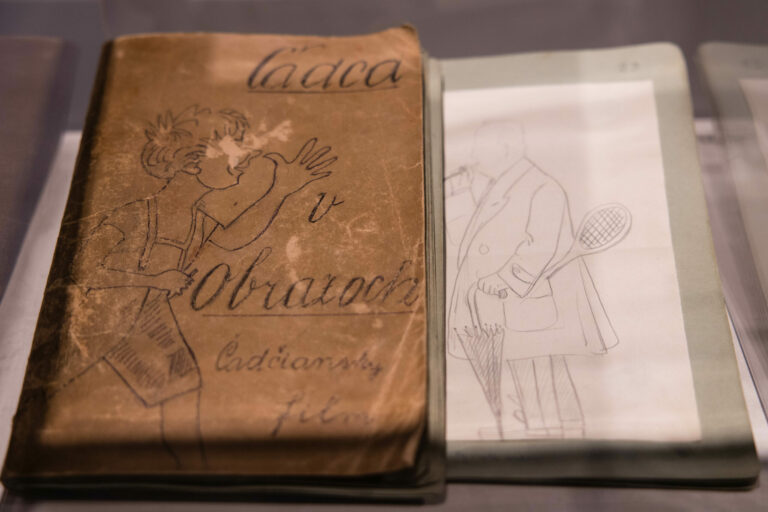 Čadca
v
Obrazoch
Čadčiansky
film